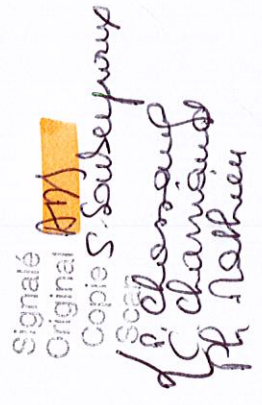 Signalé
Original AM
Copie S. Soubeyroux
Scan
P. Chassang
C. Charriaud
Ph. Mathieu